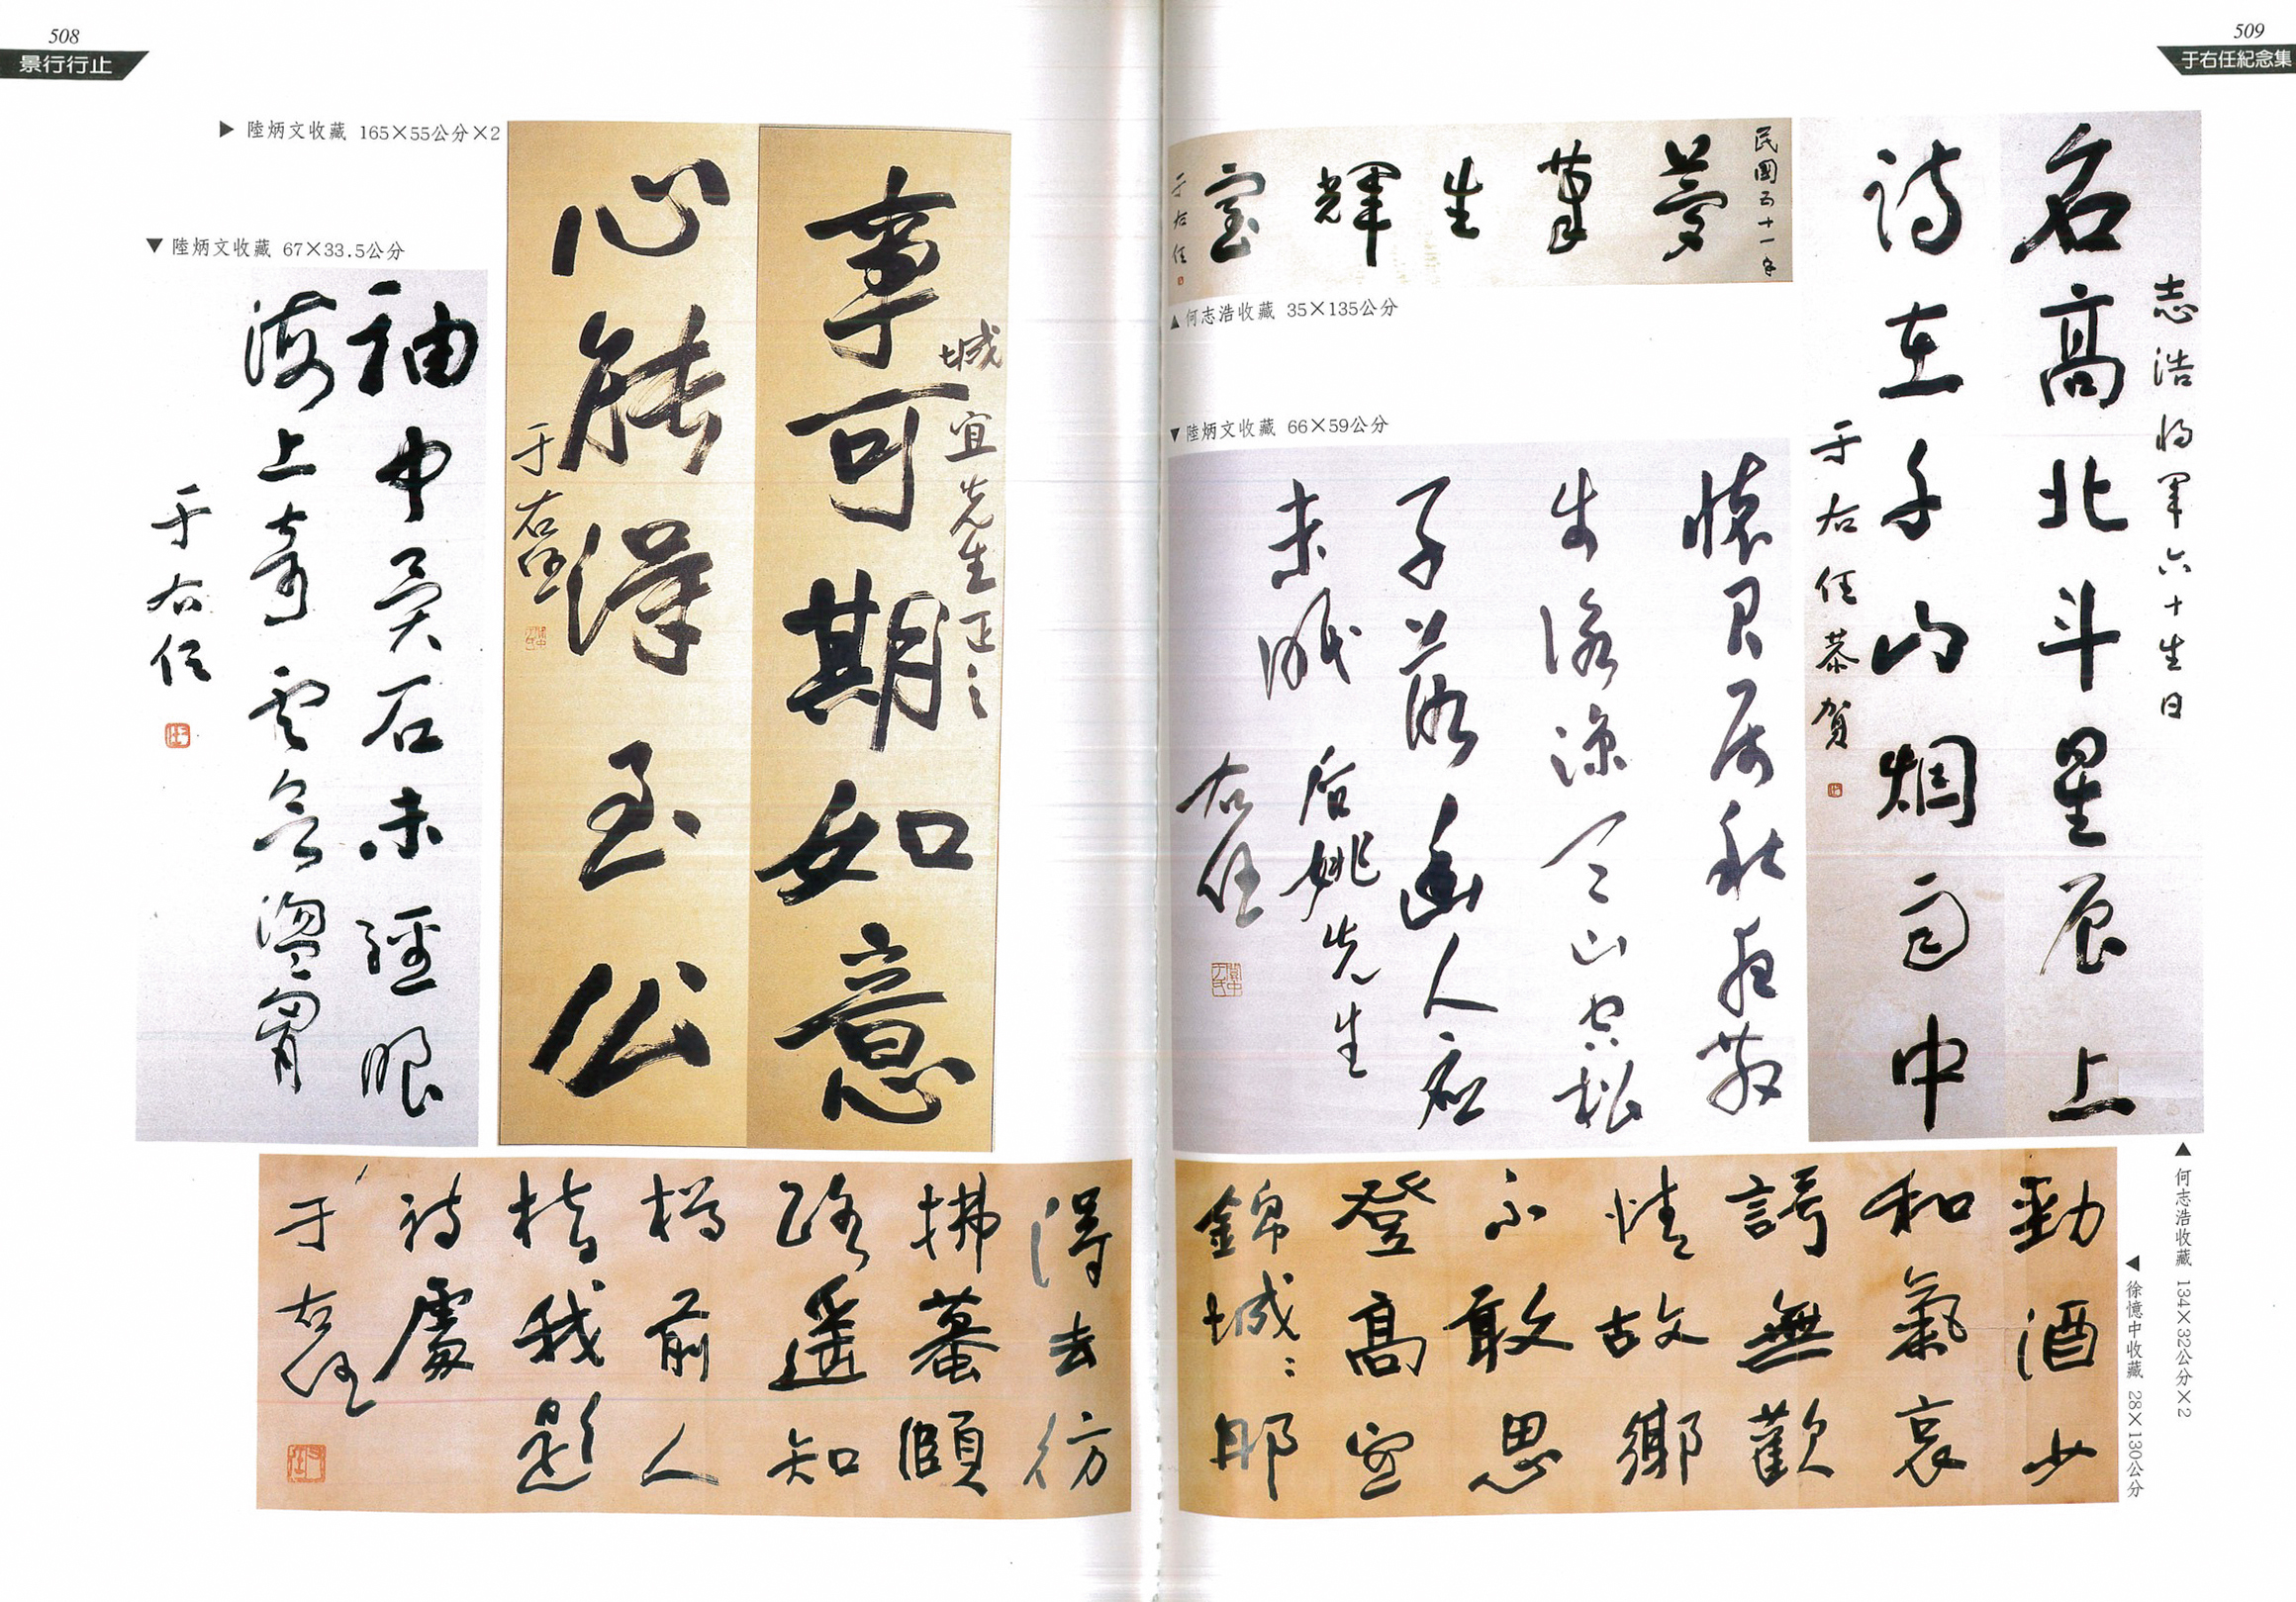 508
景行行止
▶ 陸炳文收藏 165×55公分×2
事可期如意
城宜先生正之
心能得至公
于右任
▼ 陸炳文收藏 67×33.5公分
袖中異石未經眼
海上奇雲欲盪胸
于右任
509
于右任紀念集
志浩將軍六十生日
名高北斗星辰上
詩在千山烟雨中
于右任恭賀
▲ 何志浩收藏 134×32公分×2
民國五十一年
夢筆生輝室
于右任
▲ 何志浩收藏 35×135公分
▼ 陸炳文收藏 66×59公分
懷君屬秋夜散
步詠涼天山空松
子落幽人應
未眠
后姚先生
右任
◀ 徐憶中收藏 28×130公分
勸酒少
和氣哀
謌無歡
情故鄉
不敢思
登高空
錦城:那
得去彷
拂蟇頤
路遙知
樽前人
指我題
詩處
于右任